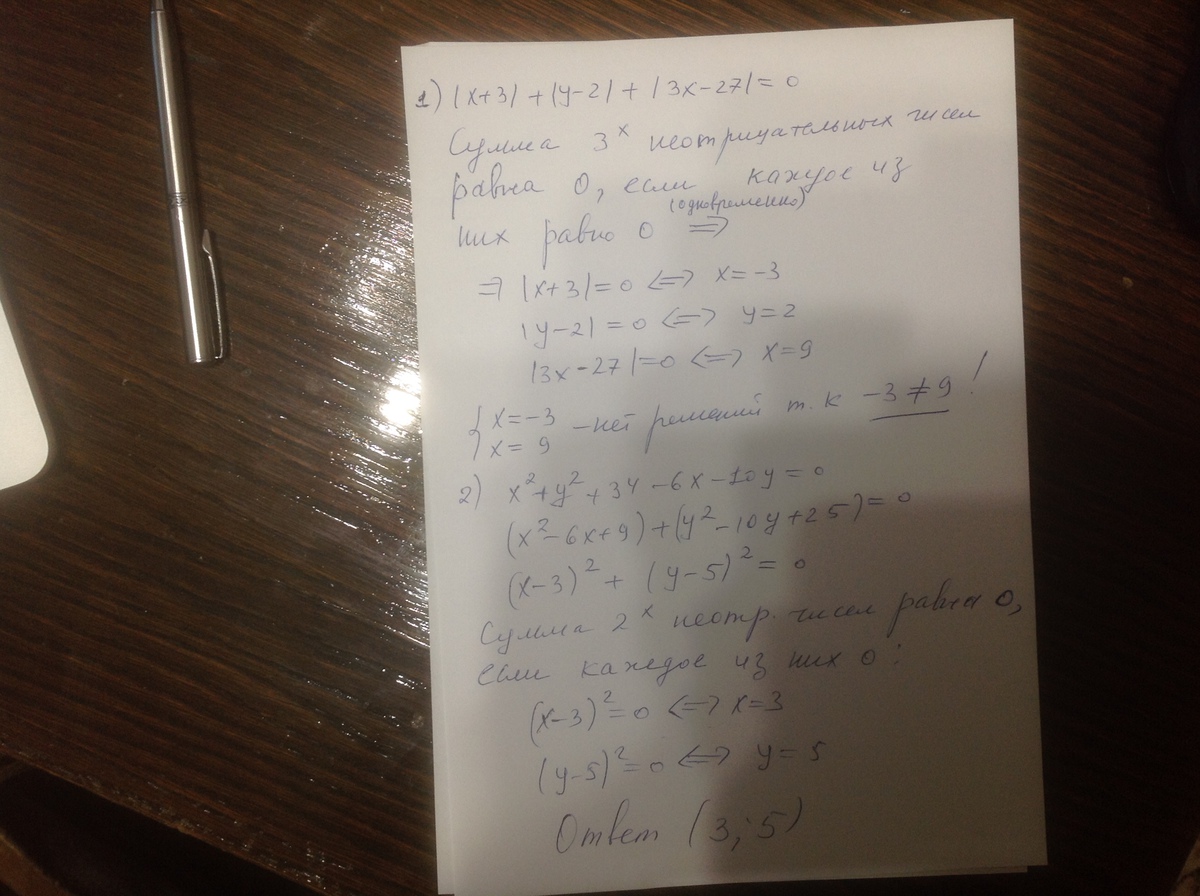 1) |x+3| + |y-2| + |3x-27| = 0
Сумма 3ˣ неотрицательных чисел
равна 0, если каждое из
(одновременно)
них равно 0 =>
=> |x+3| = 0 <=> x = -3
|y-2| = 0 <=> y = 2
|3x-27| = 0 <=> x = 9
{ x = -3
{ x = 9 – нет решений т.к -3 ≠ 9 !
2) x² + y² + 34 - 6x - 10y = 0
(x² - 6x + 9) + (y² - 10y + 25) = 0
(x-3)² + (y-5)² = 0
Сумма 2ˣ неотр. чисел равна 0,
если каждое из них 0 :
(x-3)² = 0 <=> x = 3
(y-5)² = 0 <=> y = 5
Ответ (3; 5)